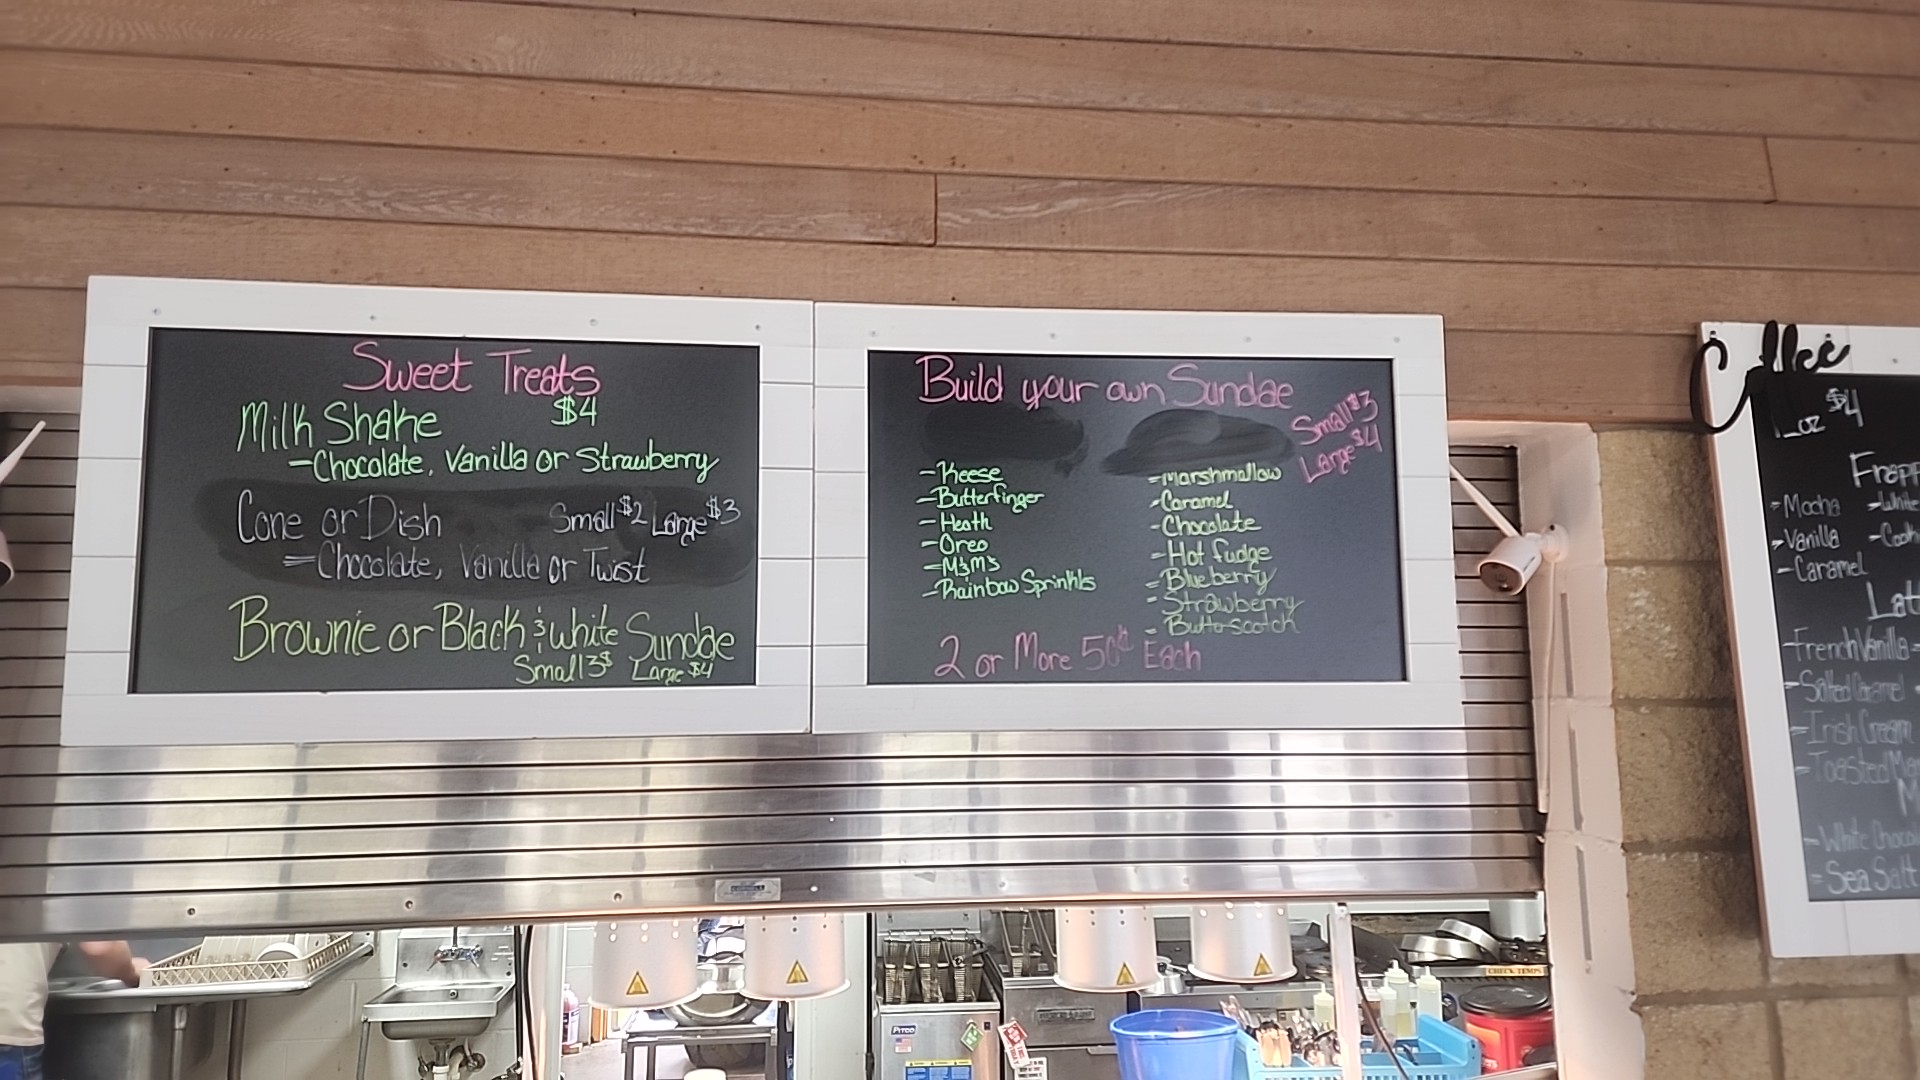 Sweet Treats
Milk Shake $4
-Chocolate, Vanilla or Strawberry
Cone or Dish Small $2 Large $3
=Chocolate, Vanilla or Twist
Brownie or Black & white Sundae
Small 3$ Large $4
Build your own Sundae
Small $3
Large $4
-Reese
-Butterfinger
-Heath
-Oreo
-M&M's
-Rainbow Sprinkles
-Marshmallow
-Caramel
-Chocolate
-Hot fudge
-Blueberry
-Strawberry
-Butterscotch
2 or More 50¢ Each
Coffee
oz $4
Frapp
-Mocha -White
-Vanilla -Cook
-Caramel
Lat
-French Vanilla -
-Salted Caramel
-Irish Cream
-Toasted Ma
M
-White Chocol
-Sea Salt
Pitco
CHECK TEMPS